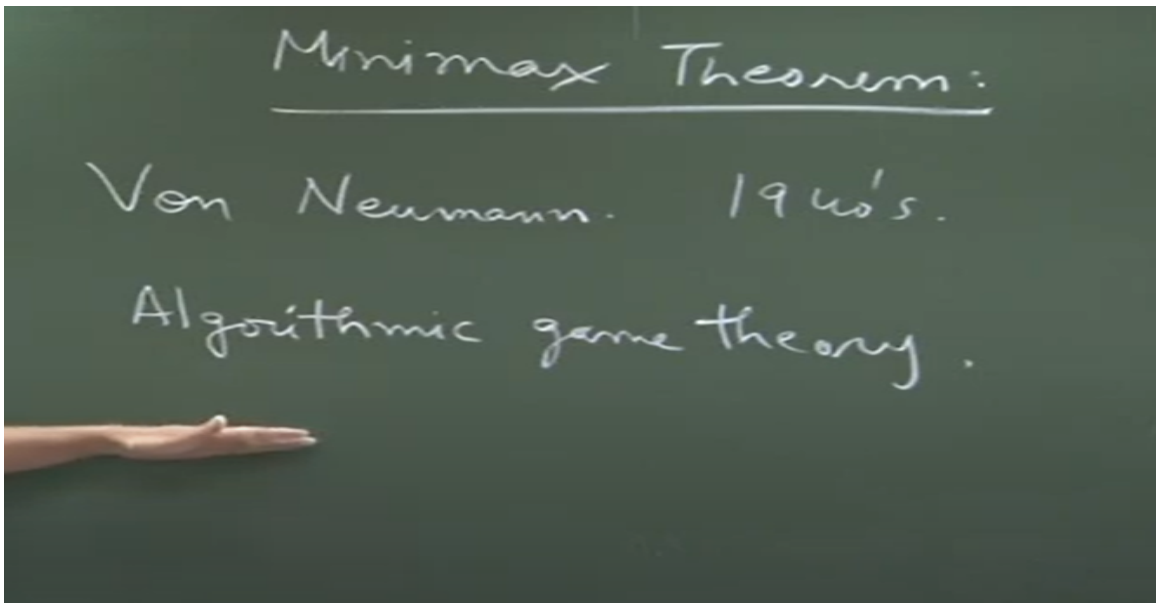 Minimax Theorem:
Von Neumann. 1940's.
Algorithmic game theory.